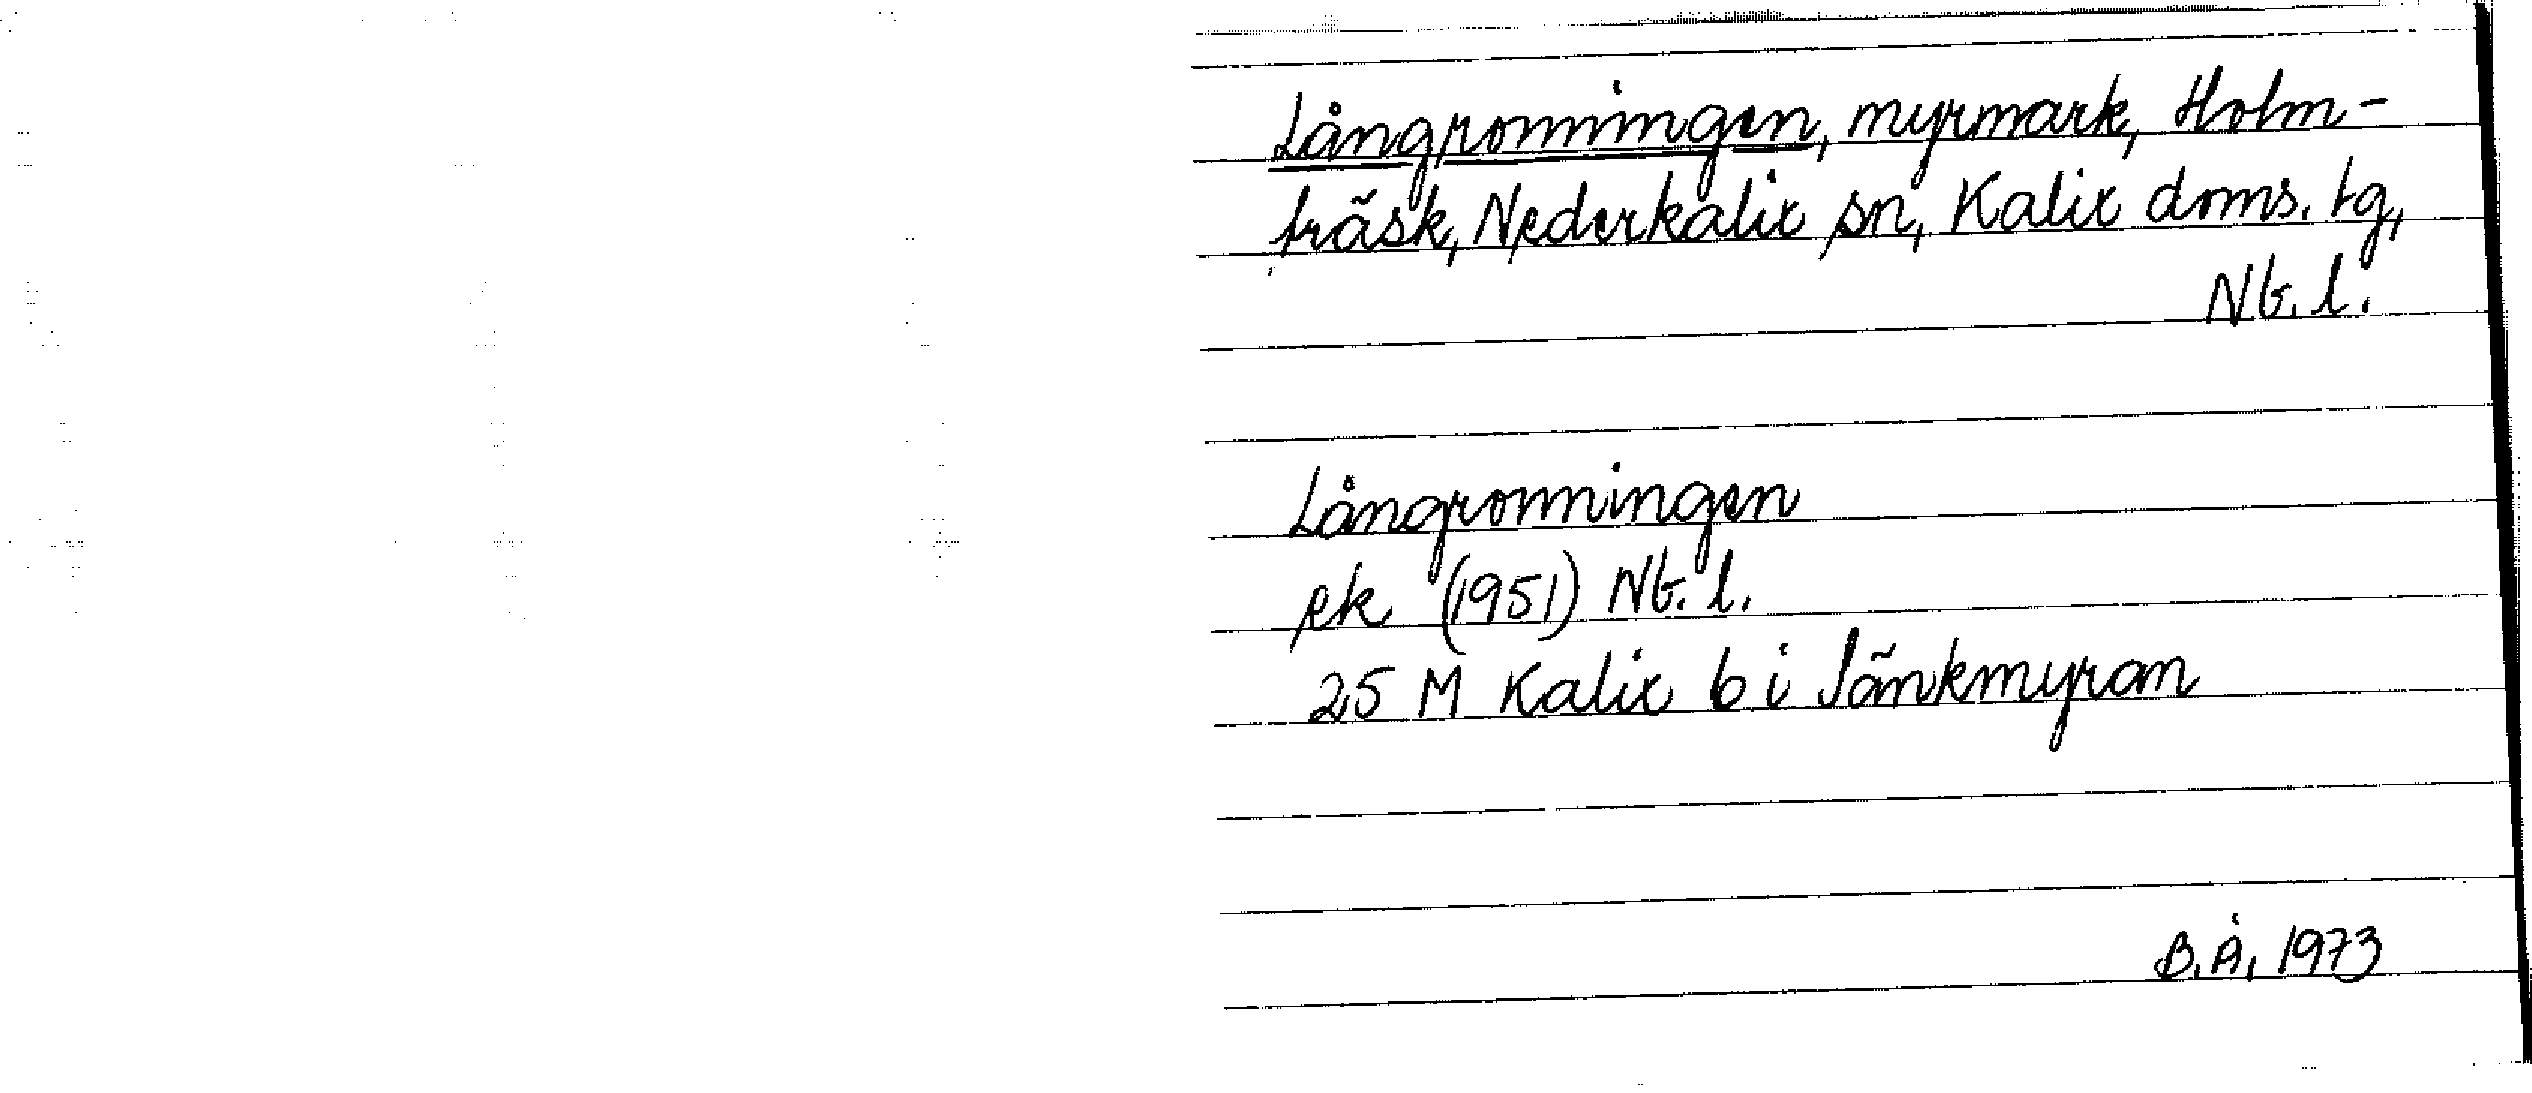 Långronningen, myrmark, Holm-
träsk, Nederkalix sn, Kalix doms. tg,
Nb. l.
Långronningen
ek (1951) Nb. l.
25 M Kalix b i Jänkmyran
B. Å. 1973